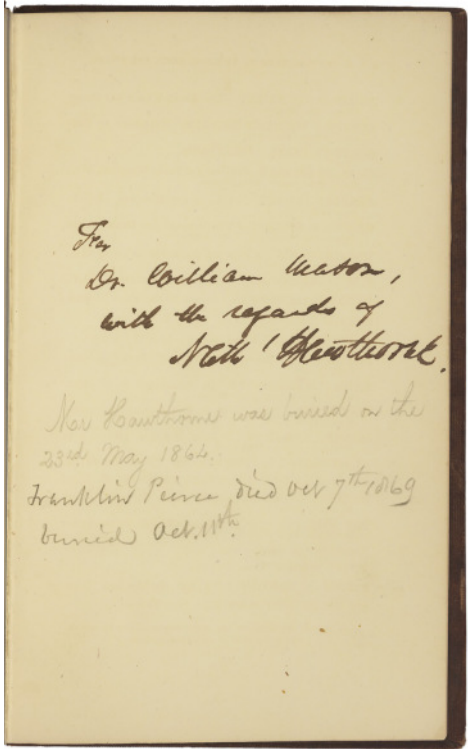 For
Dr. William Mason,
with the regards of
Nath' Hawthorne.
Mr Hawthorne was buried on the
23rd May 1864.
Franklin Pierce died Oct 7th 1869
buried Oct. 11th.